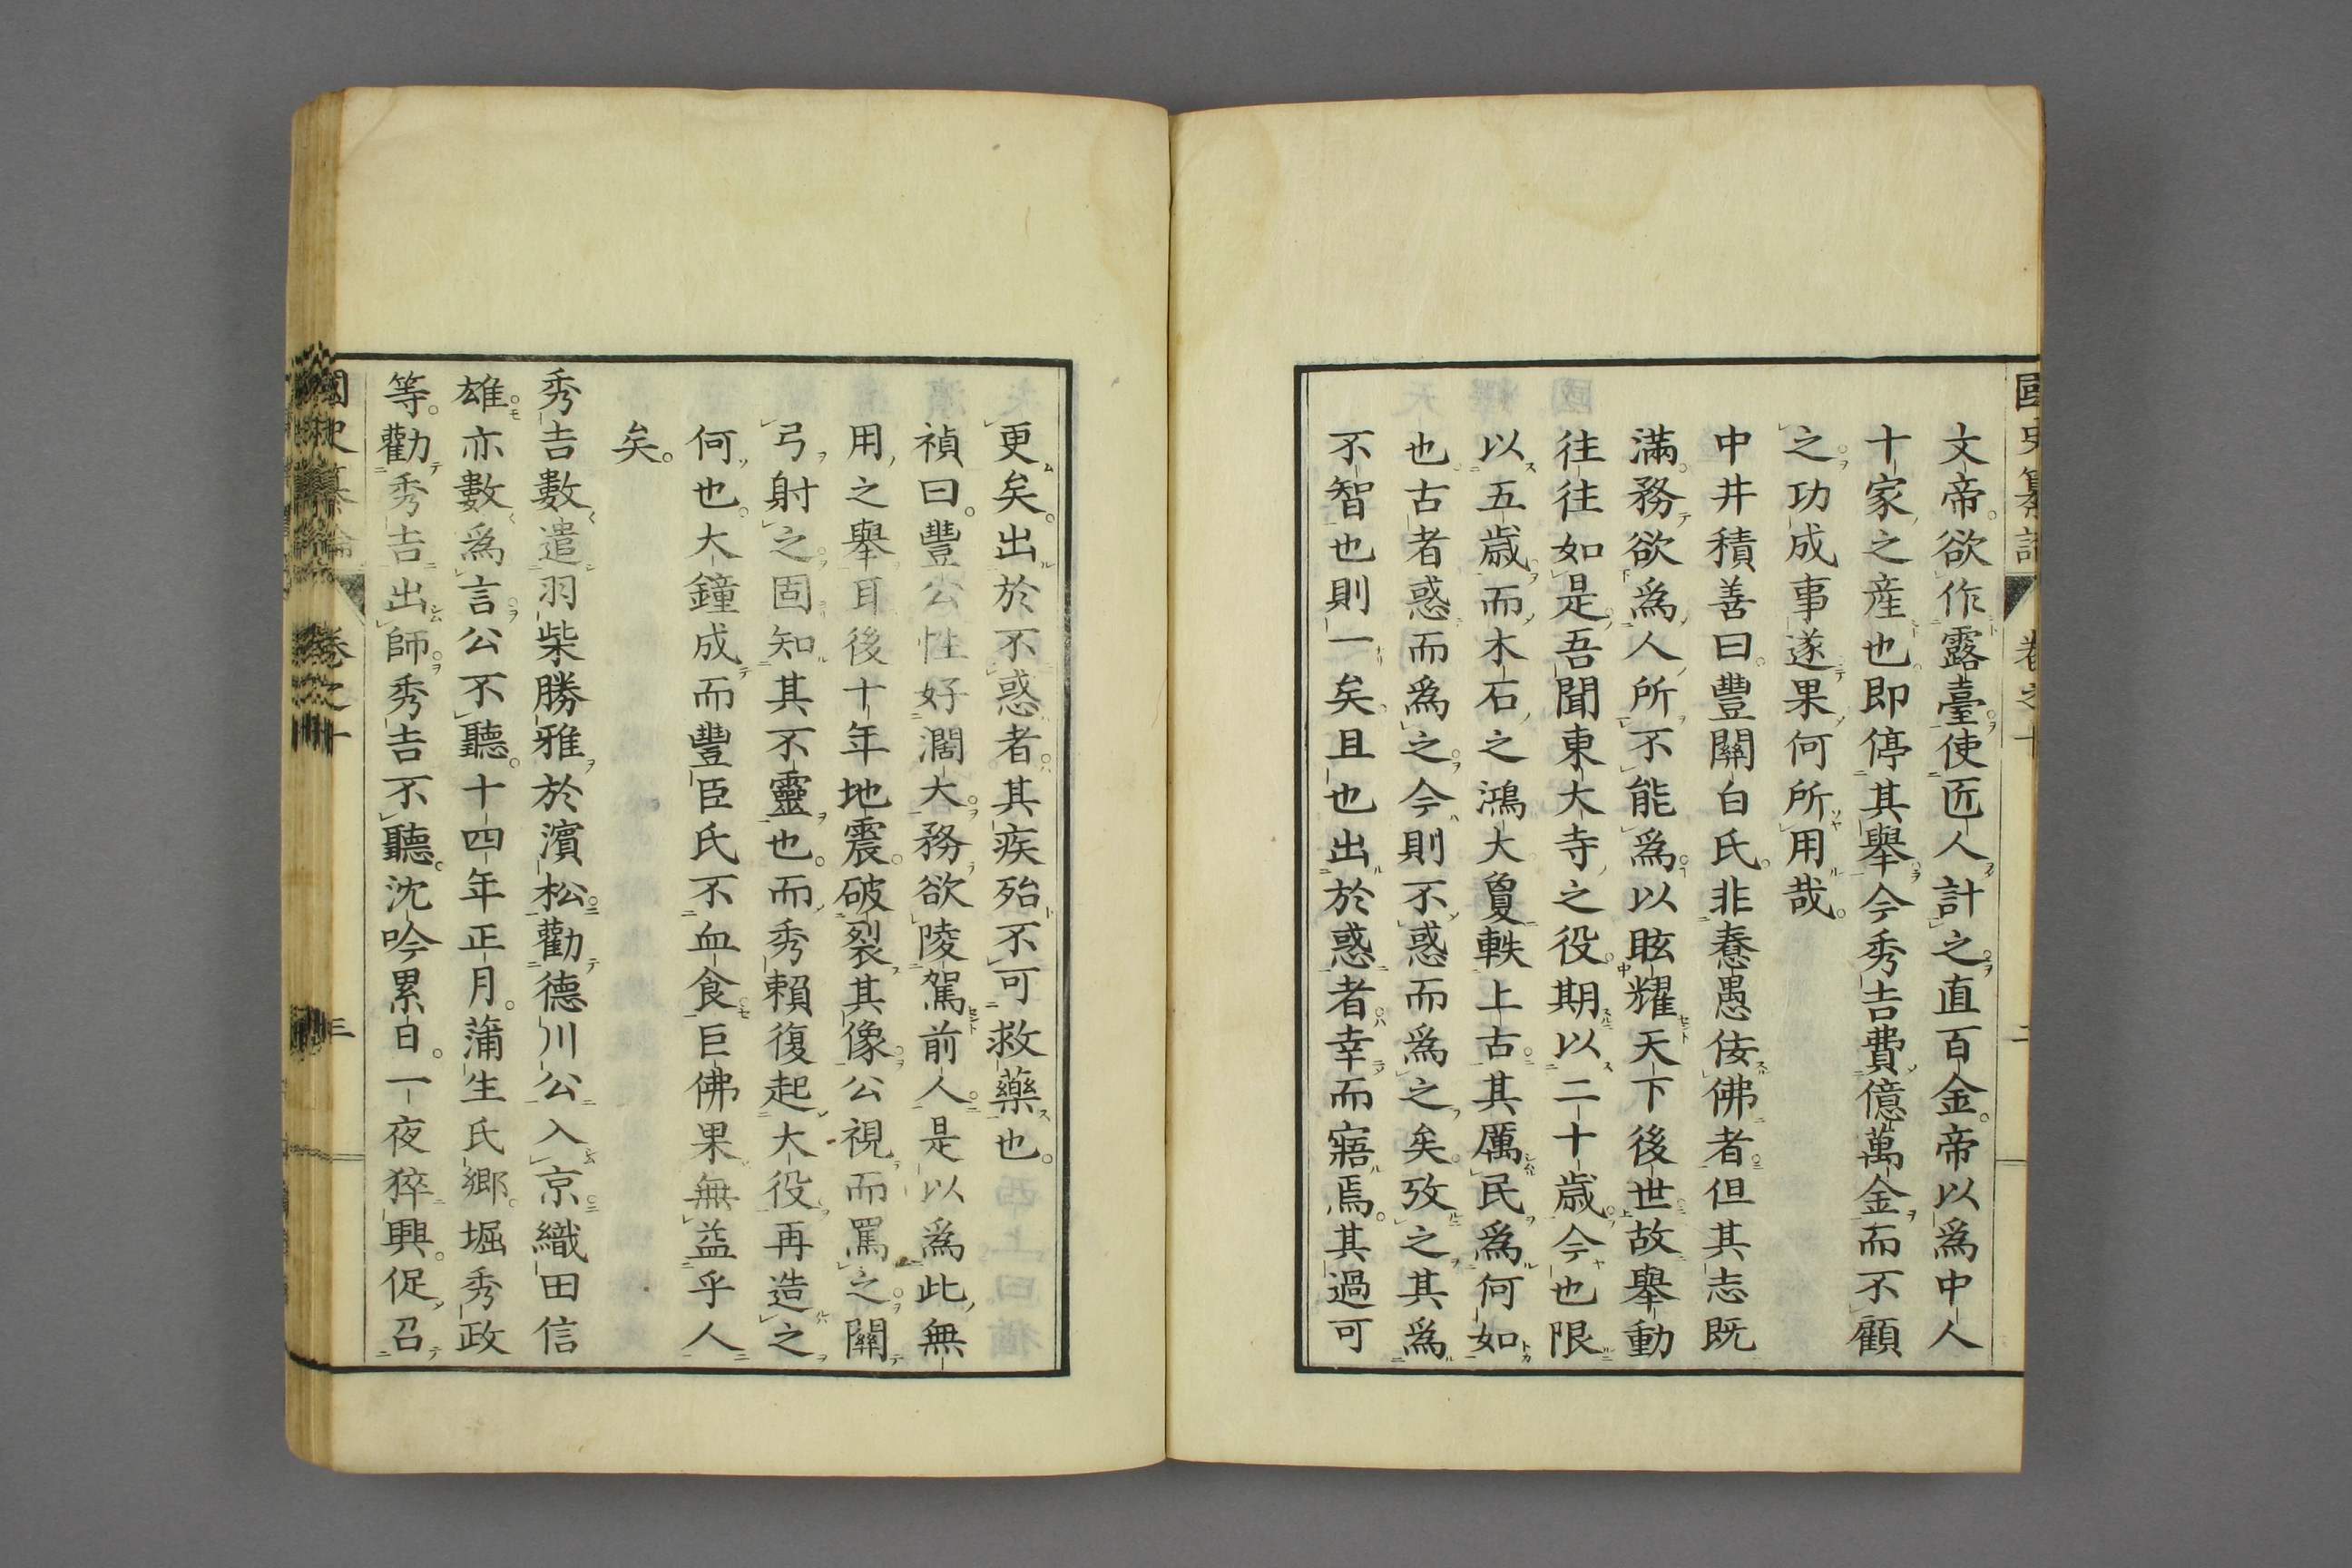 文帝。欲作露臺使匠人計之直百金。帝以爲中人
十家之産也。即停其舉今秀吉費億萬金而不顧
之功成事遂果何所用哉。
中井積善曰。豐關白氏。非惷愚佞佛者但其志既
滿。務欲爲人所不能爲以眩耀天下後世故舉動
往往如是。吾聞東大寺之役。期以二十歳今也限
以五歳而木石之鴻大敻軼上古其厲民爲何如
也古者惑而爲之今則不惑而爲之矣。攷之其爲
不智也則一矣。且也出於惑者幸而寤焉。其過可
更矣。出於不惑者。其疾殆不可救藥也。
禎曰。豐公性好濶大務欲陵駕前人是以爲此無
用之舉耳後十年地震。破裂其像。公視而罵之。關
弓射之固知其不靈也。而秀賴復起大役再造之
何也。大鐘成而豐臣氏不血食巨佛果無益乎人
矣。
秀吉數遣羽柴勝雅於濱松勸德川公入京織田信
雄亦數爲言公不聽。十四年正月。蒲生氏鄉。堀秀政
等。勸秀吉出師秀吉不聽。沈吟累日。一夜猝興。促召
國史纂論
卷之十
三